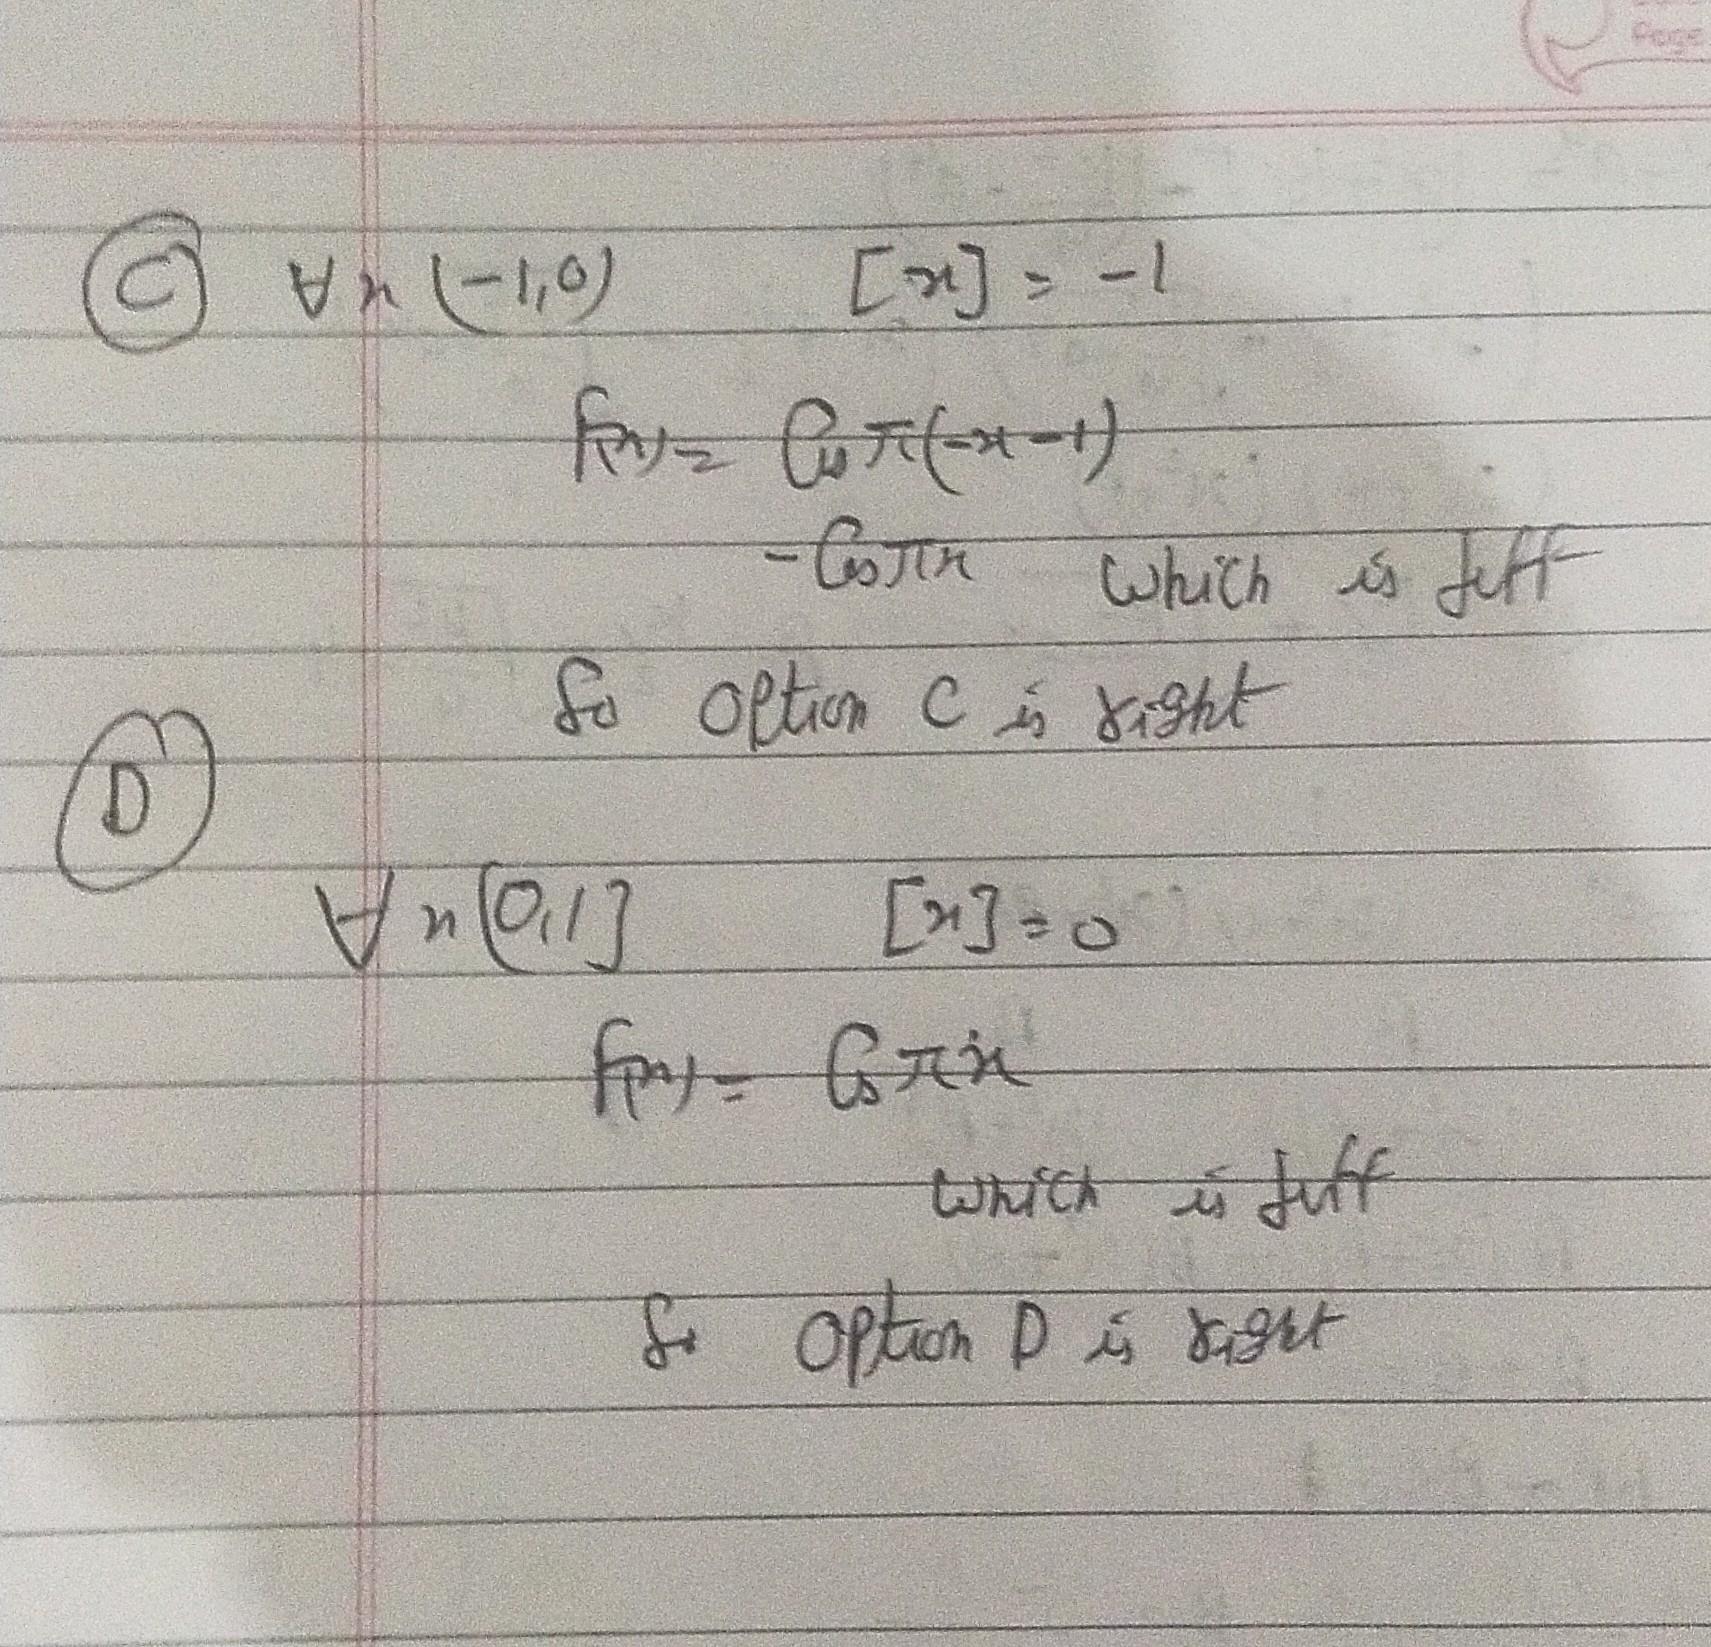 Page
C ∀ x (-1,0) [x] = -1
f(x) = Cos π(-x-1)
-Cos πx which is diff
So option C is right
D
∀ x (0,1] [x] = 0
f(x) = Cos πx
which is diff
So option D is right